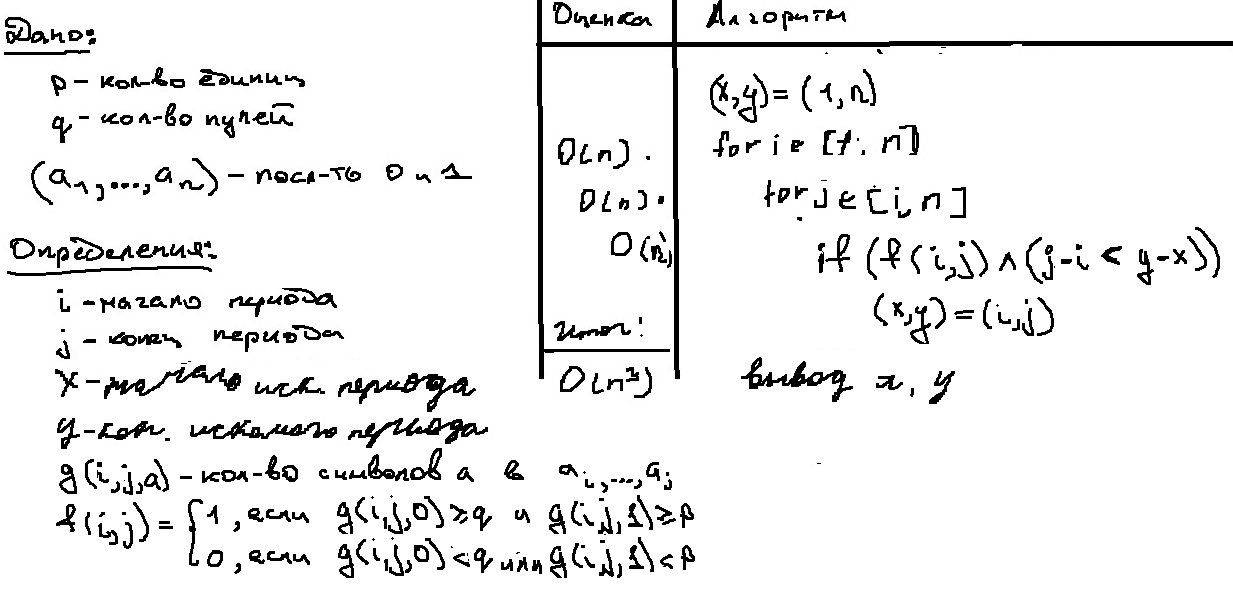 Дано:
p - кол-во единиц
q - кол-во нулей
(a₁,...,aₙ) - посл-ть 0 и 1
Определения:
i - начало периода
j - конец периода
x - начало иск. периода
y - кон. искомого периода
g(i,j,a) - кол-во символов a в aᵢ,...,aⱼ
f(i,j) = { 1, если g(i,j,0) ≥ q и g(i,j,1) ≥ p
0, если g(i,j,0) < q или g(i,j,1) < p
Оценка
Алгоритм
(x,y) = (1,n)
O(n) · for i ∈ [1; n]
O(n) · for j ∈ [i, n]
O(n) if (f(i,j) ∧ (j-i < y-x))
(x,y) = (i,j)
Итог:
O(n³) вывод x, y